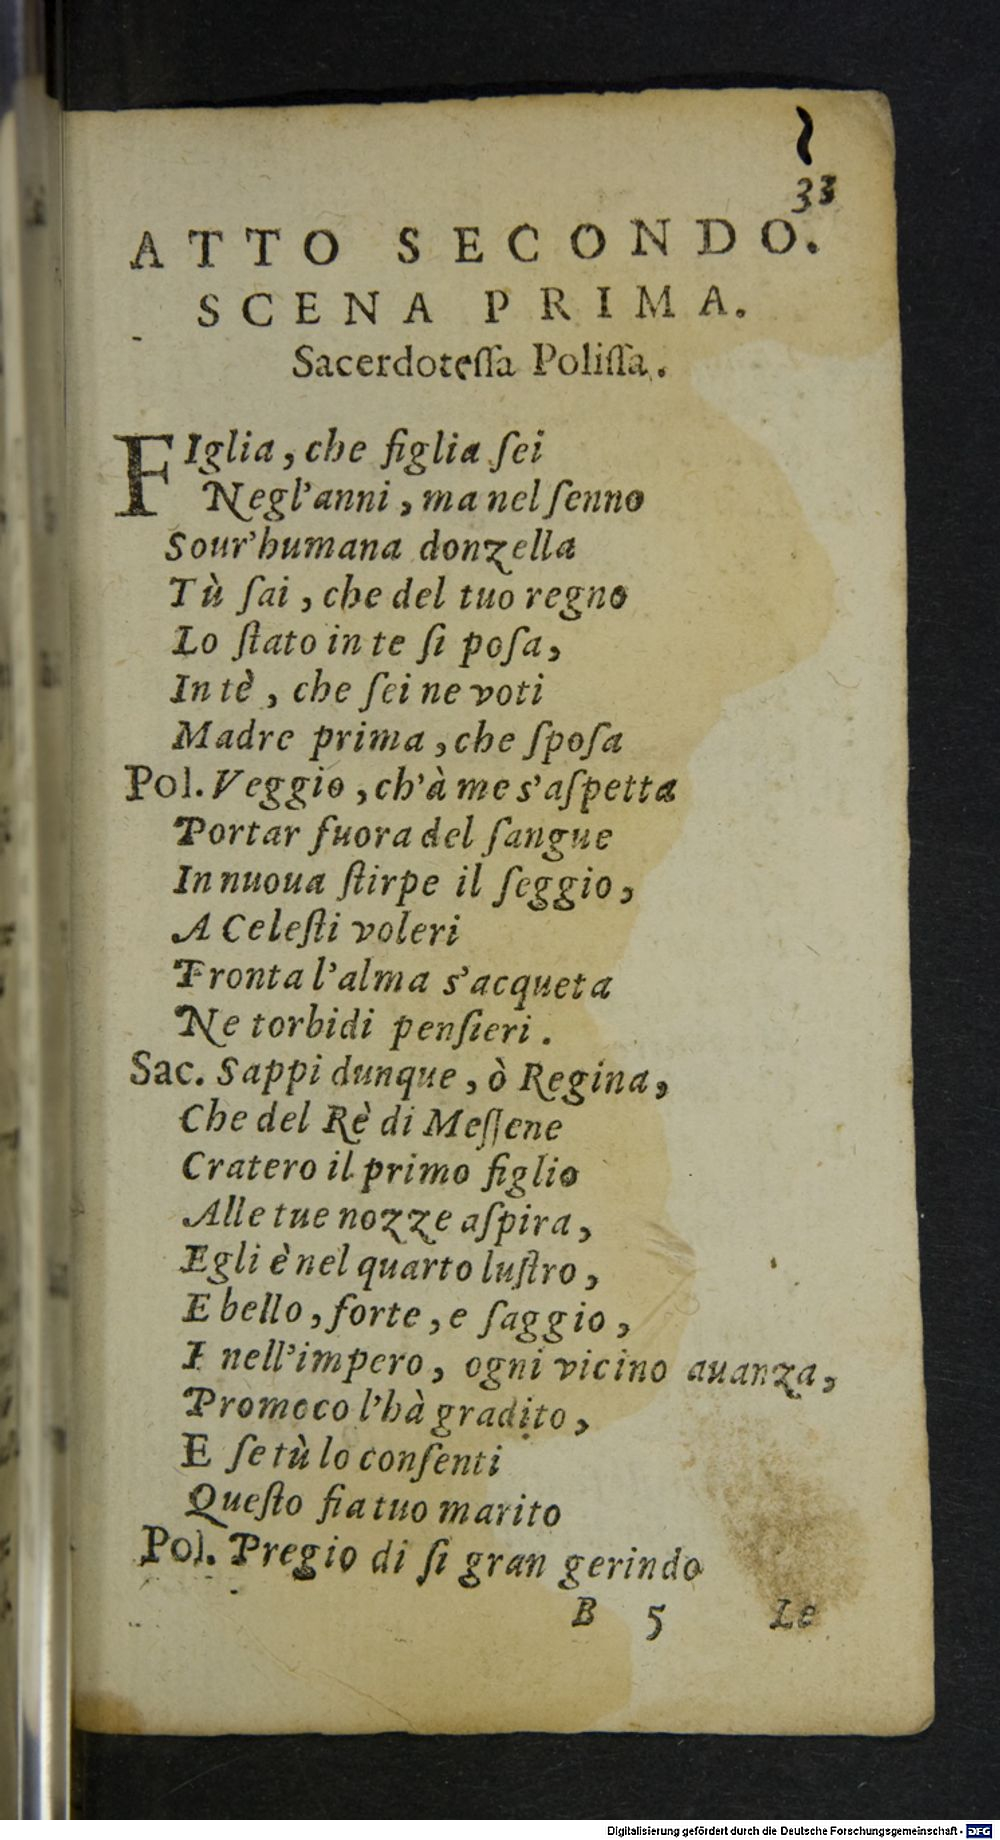 33
ATTO SECONDO.
SCENA PRIMA.
Sacerdoteſſa Poliſſa.
FIglia, che figlia ſei
Negl'anni, ma nel ſenno
Sour'humana donzella
Tù ſai, che del tuo regno
Lo ſtato in te ſi poſa,
In tè, che ſei ne voti
Madre prima, che ſpoſa
Pol. Veggio, ch'à me s'aſpetta
Portar fuora del ſangue
In nuoua ſtirpe il ſeggio,
A Celeſti voleri
Pronta l'alma s'acqueta
Ne torbidi penſieri.
Sac. Sappi dunque, ò Regina,
Che del Rè di Meſſene
Cratero il primo figlio
Alle tue nozze aſpira,
Egli è nel quarto luſtro,
E bello, forte, e ſaggio,
E nell'impero, ogni vicino auanza,
Promoco l'hà gradito,
E ſe tù lo conſenti
Queſto fia tuo marito
Pol. Pregio di ſi gran gerindo
B 5 Le
Digitalisierung gefördert durch die Deutsche Forschungsgemeinschaft - DFG